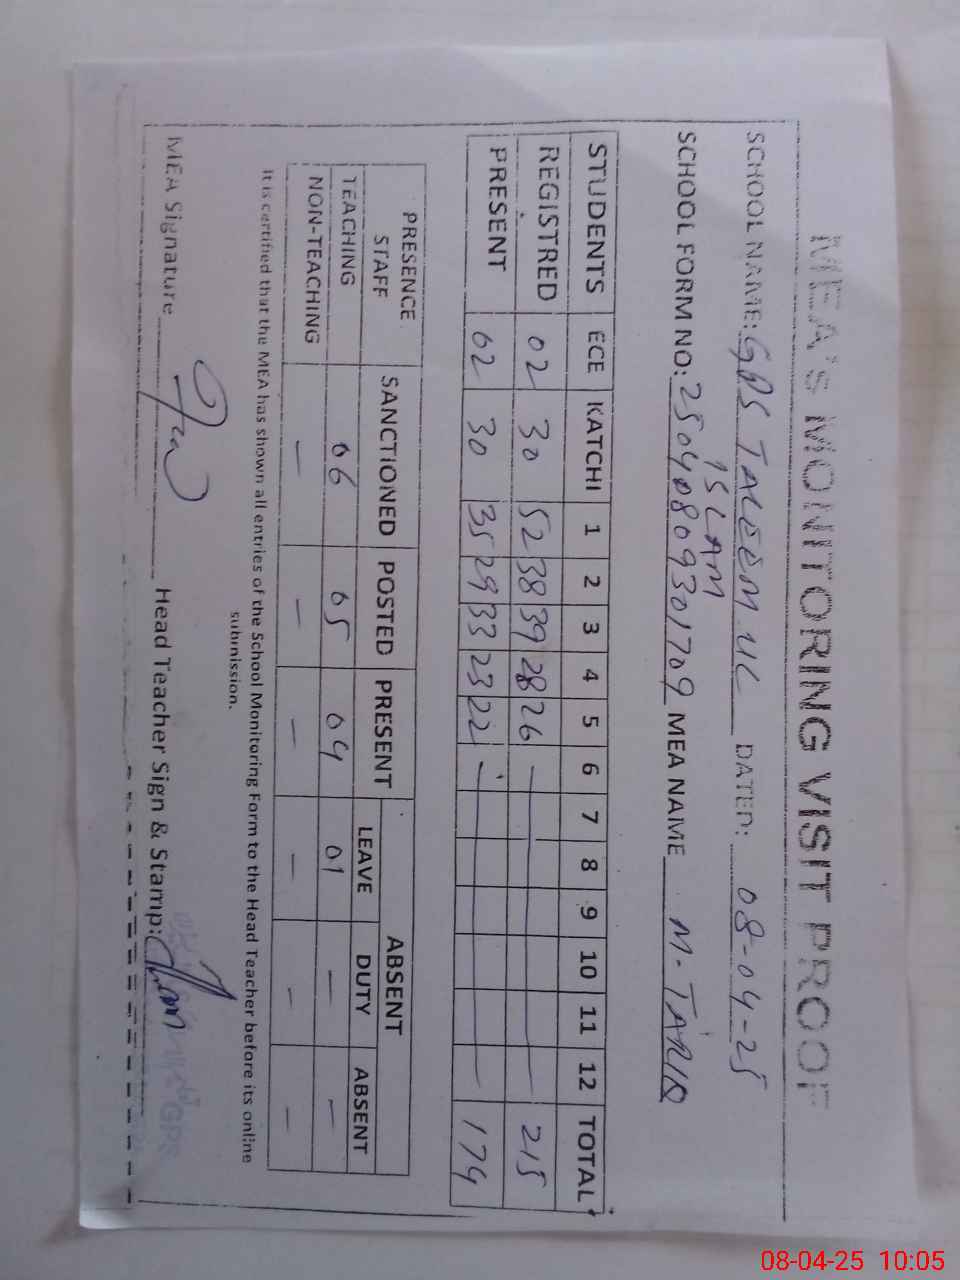 MEA's MONITORING VISIT PROOF
SCHOOL NAME: GPS TALEEM UL ISLAM DATED: 08-04-25
SCHOOL FORM NO: 25040809301709 MEA NAME M. TARIQ
STUDENTS ECE KATCHI 1 2 3 4 5 6 7 8 9 10 11 12 TOTAL
REGISTRED 02 30 52 38 39 28 26 — 215
PRESENT 02 30 35 29 33 23 22 — 174
PRESENCE STAFF SANCTIONED POSTED PRESENT ABSENT
LEAVE DUTY ABSENT
TEACHING 06 05 04 01 — —
NON-TEACHING — — — — — —
It is certified that the MEA has shown all entries of the School Monitoring Form to the Head Teacher before its online
submission.
MEA Signature Head Teacher Sign & Stamp:
GPS
08-04-25 10:05